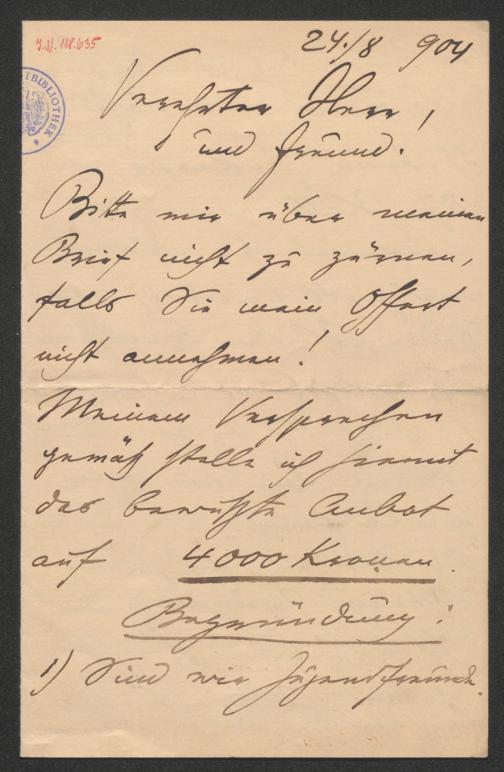 J.N. 118.635
TBIBLIOTHEK
24./8 904
Verehrter Herr,
und Freund!
Bitte mir über meinen
Brief nicht zu zürnen,
falls Sie mein Offert
nicht annehmen!
Meinem Versprechen
gemäß stelle ich hiemit
das bewußte Anbot
auf 4000 Kronen.
Begründung:
1) Sind wir Jugendfreunde.